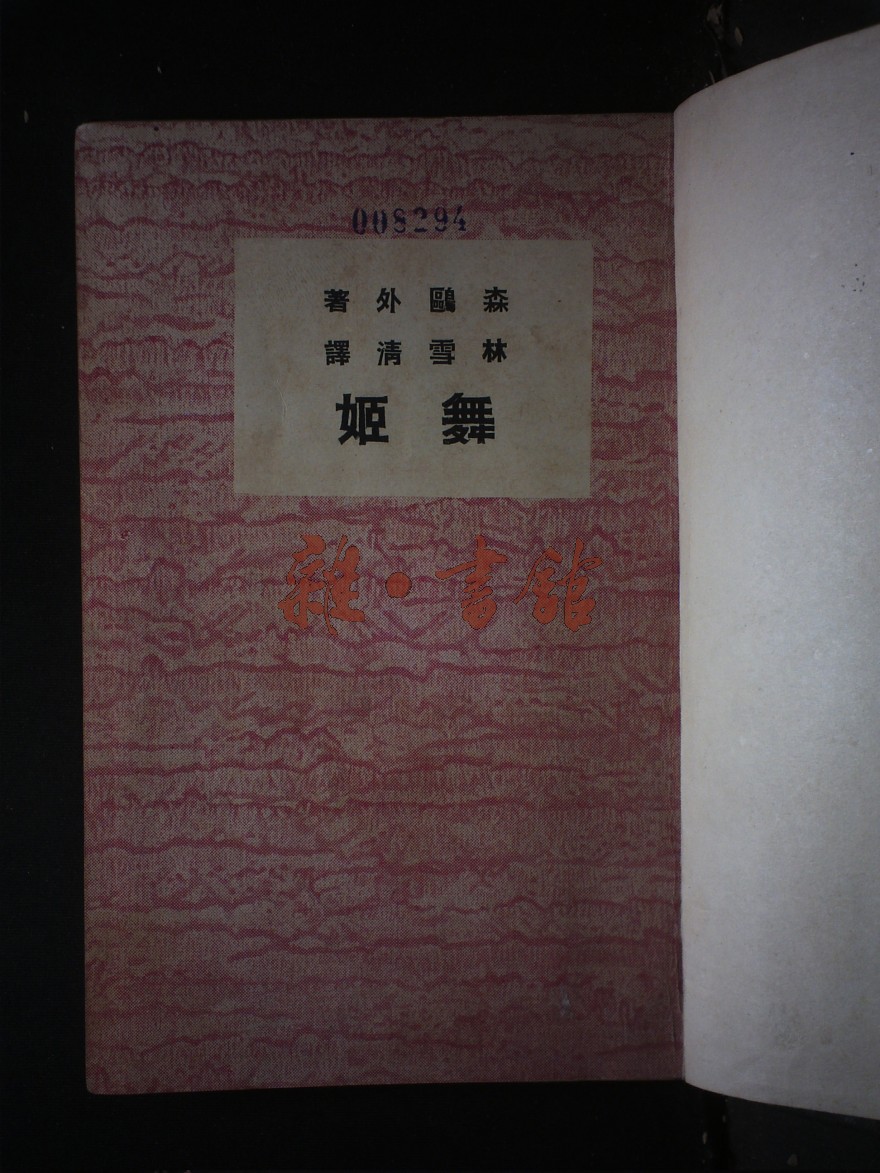 008294
森鷗外著
林雪清譯
舞姬
雜·書館